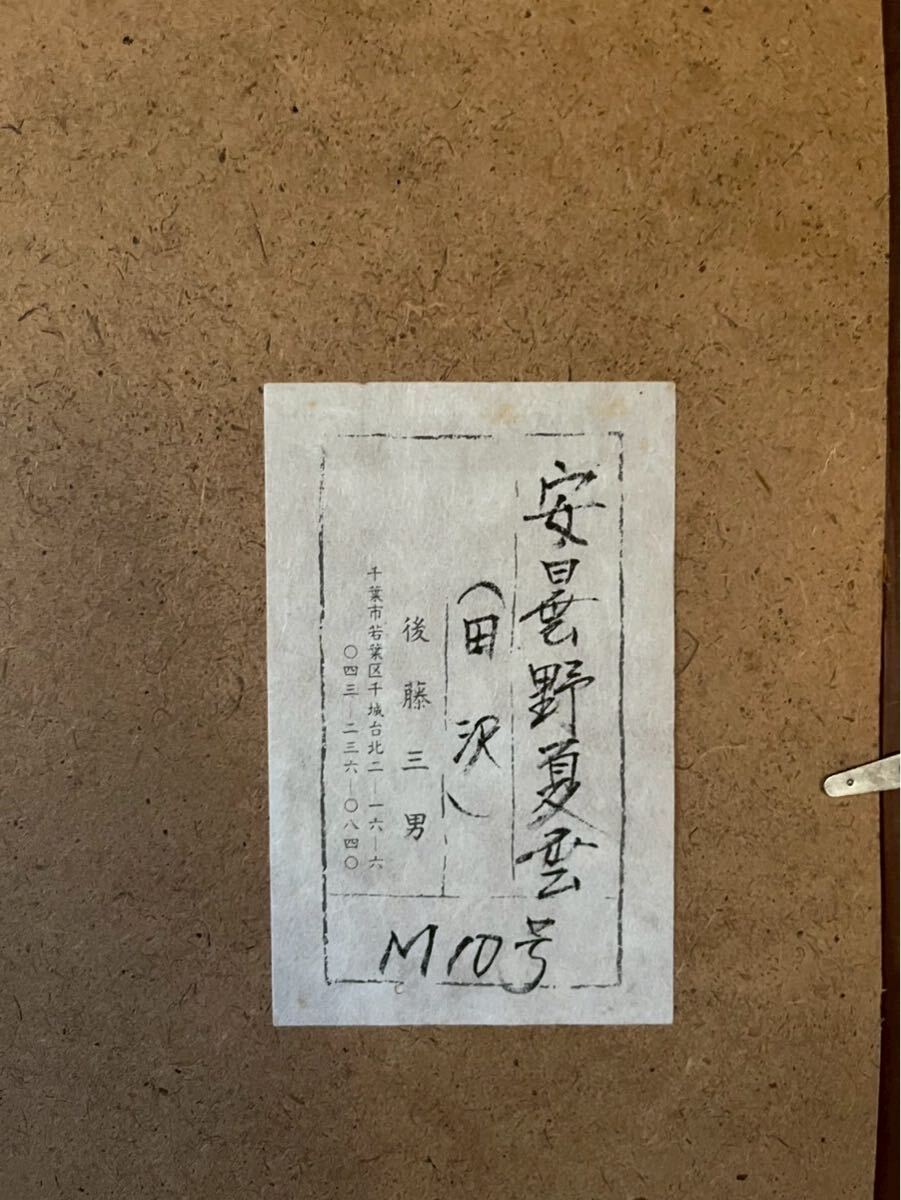 安曇野夏雲
(田沢)
後藤三男
千葉市若葉区千城台北二ー一六ー六
〇四三ー二三六ー〇八四〇
M10号